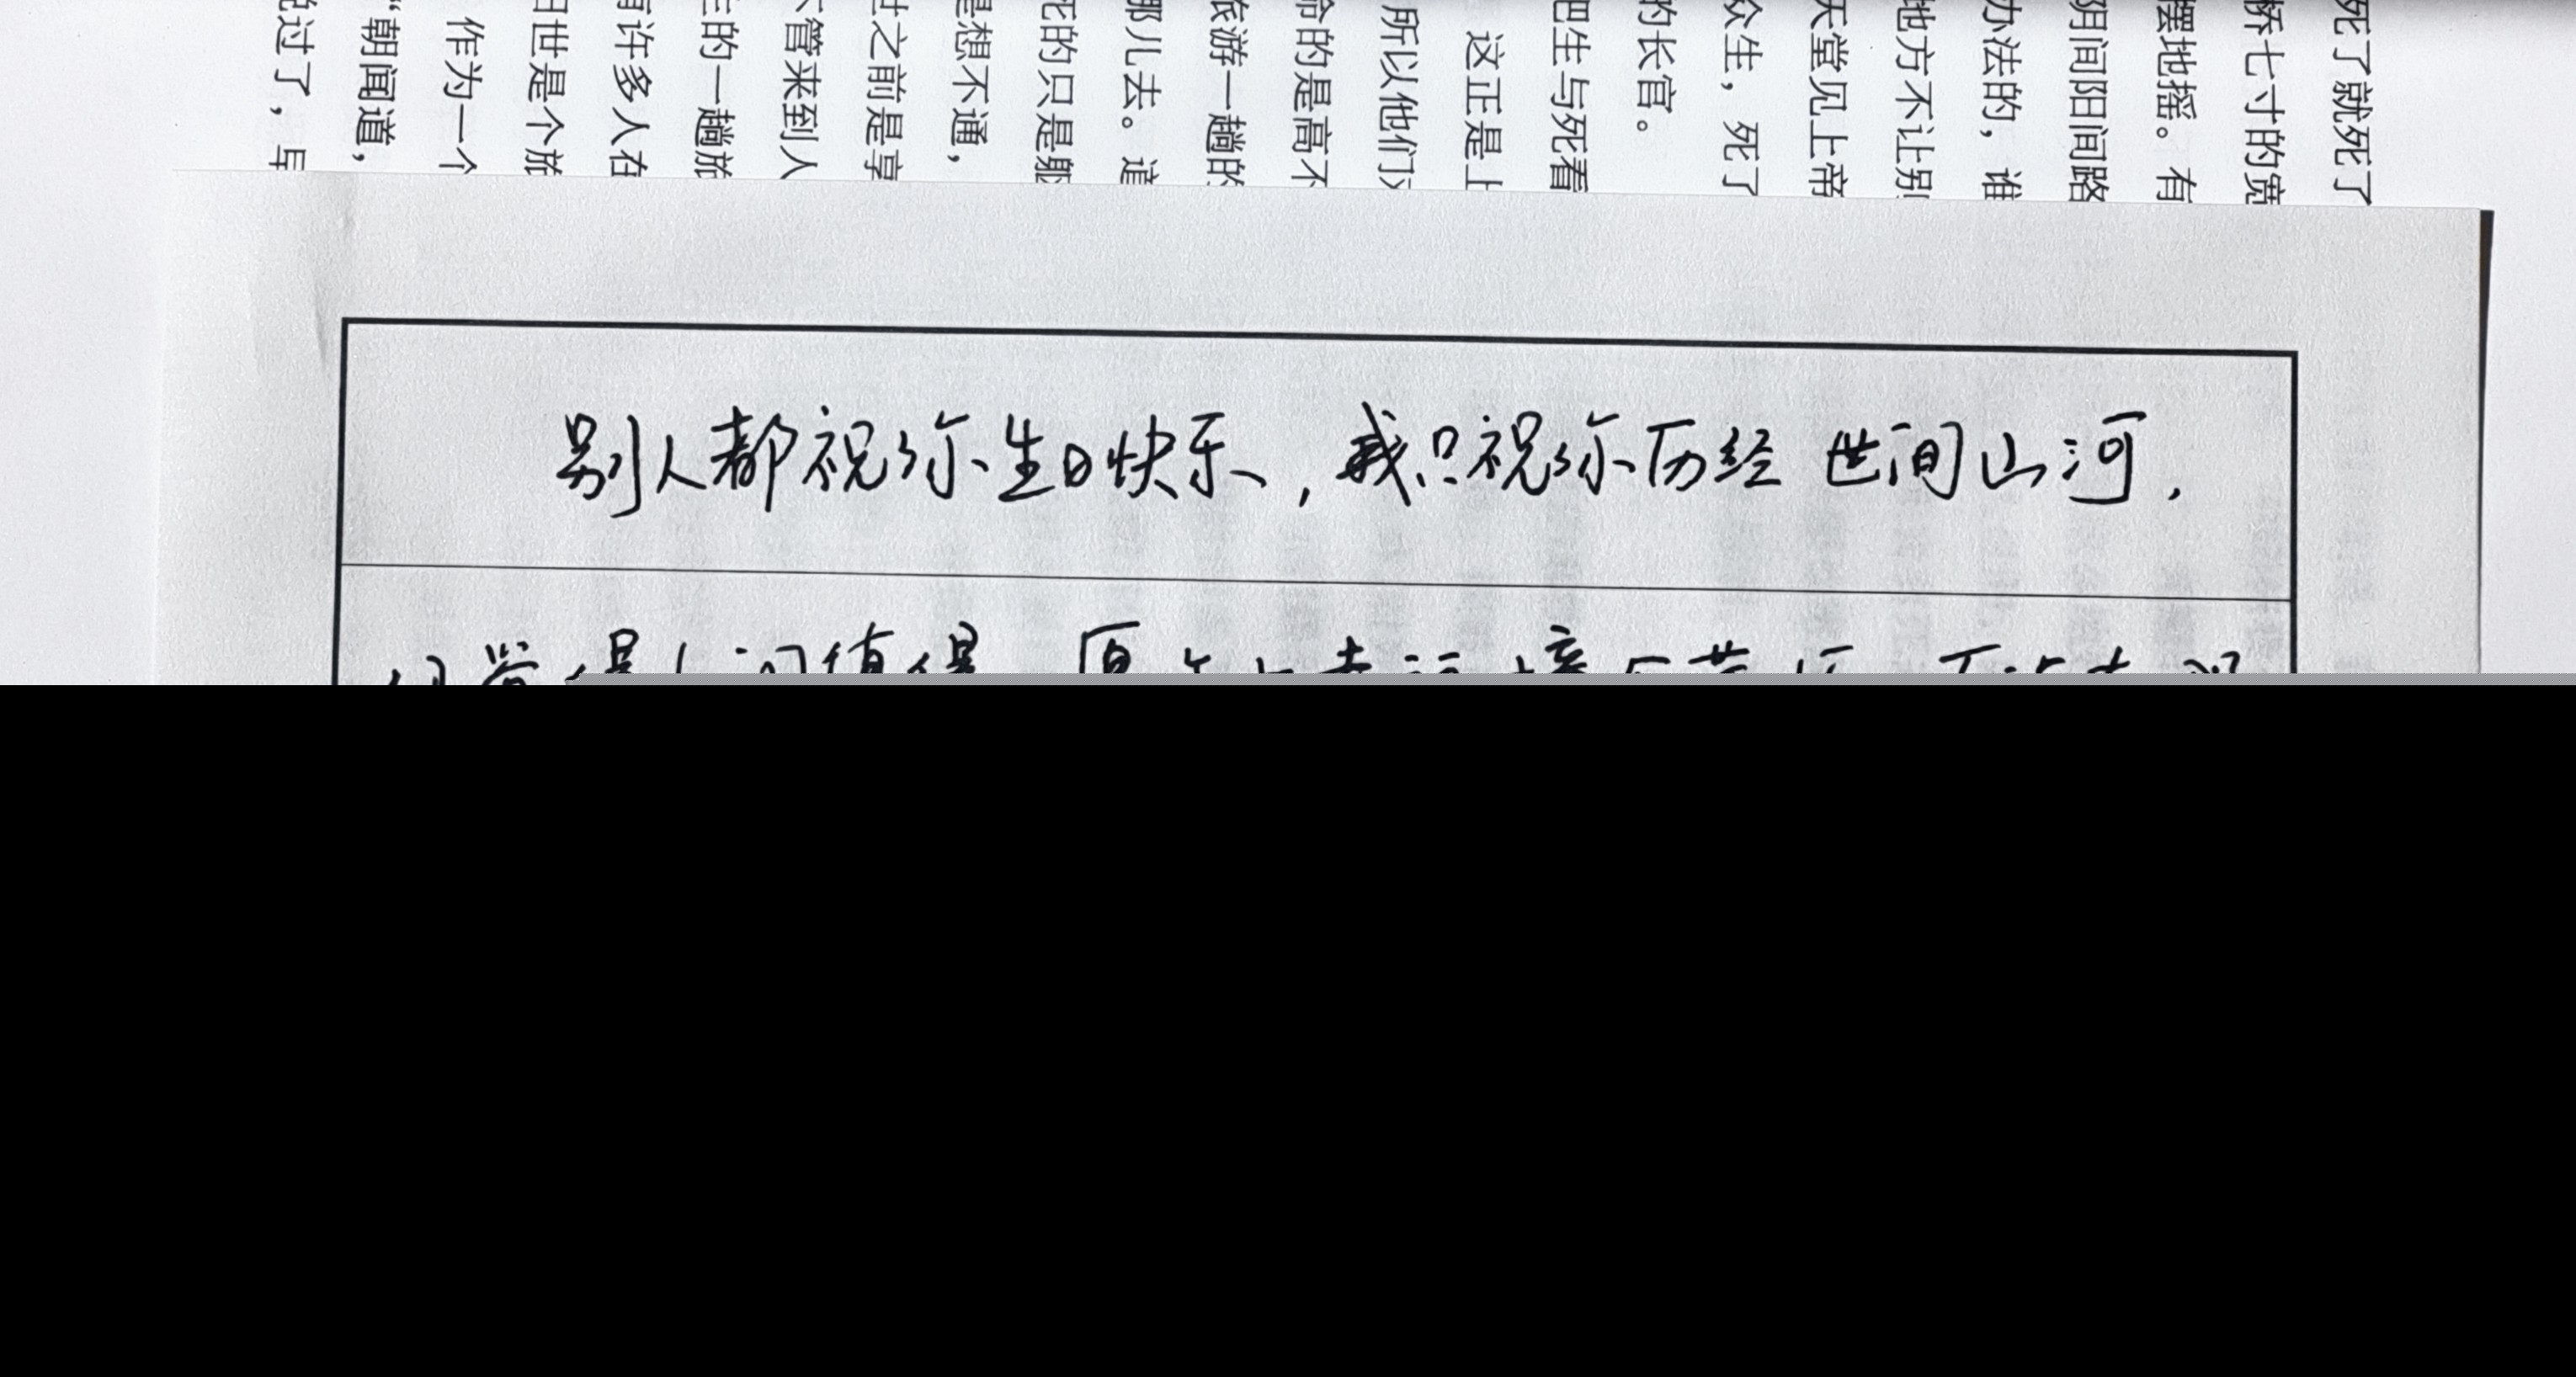 死了就死了
桥七寸的宽
摆地摇。有
阴间阳间路
办法的，谁
地方不让别
天堂见上帝
众生，死了
的长官。
把生与死看
这正是上
所以他们
命的是高不
旅游一趟的
那儿去。道
死的只是躯
是想不通，
世之前是享
不管来到人
的一趟旅
有许多人在
世是个旅
作为一个
“朝闻道，
说过了，
别人都祝你生日快乐，我只祝你历经世间山河，
觉得人间值得